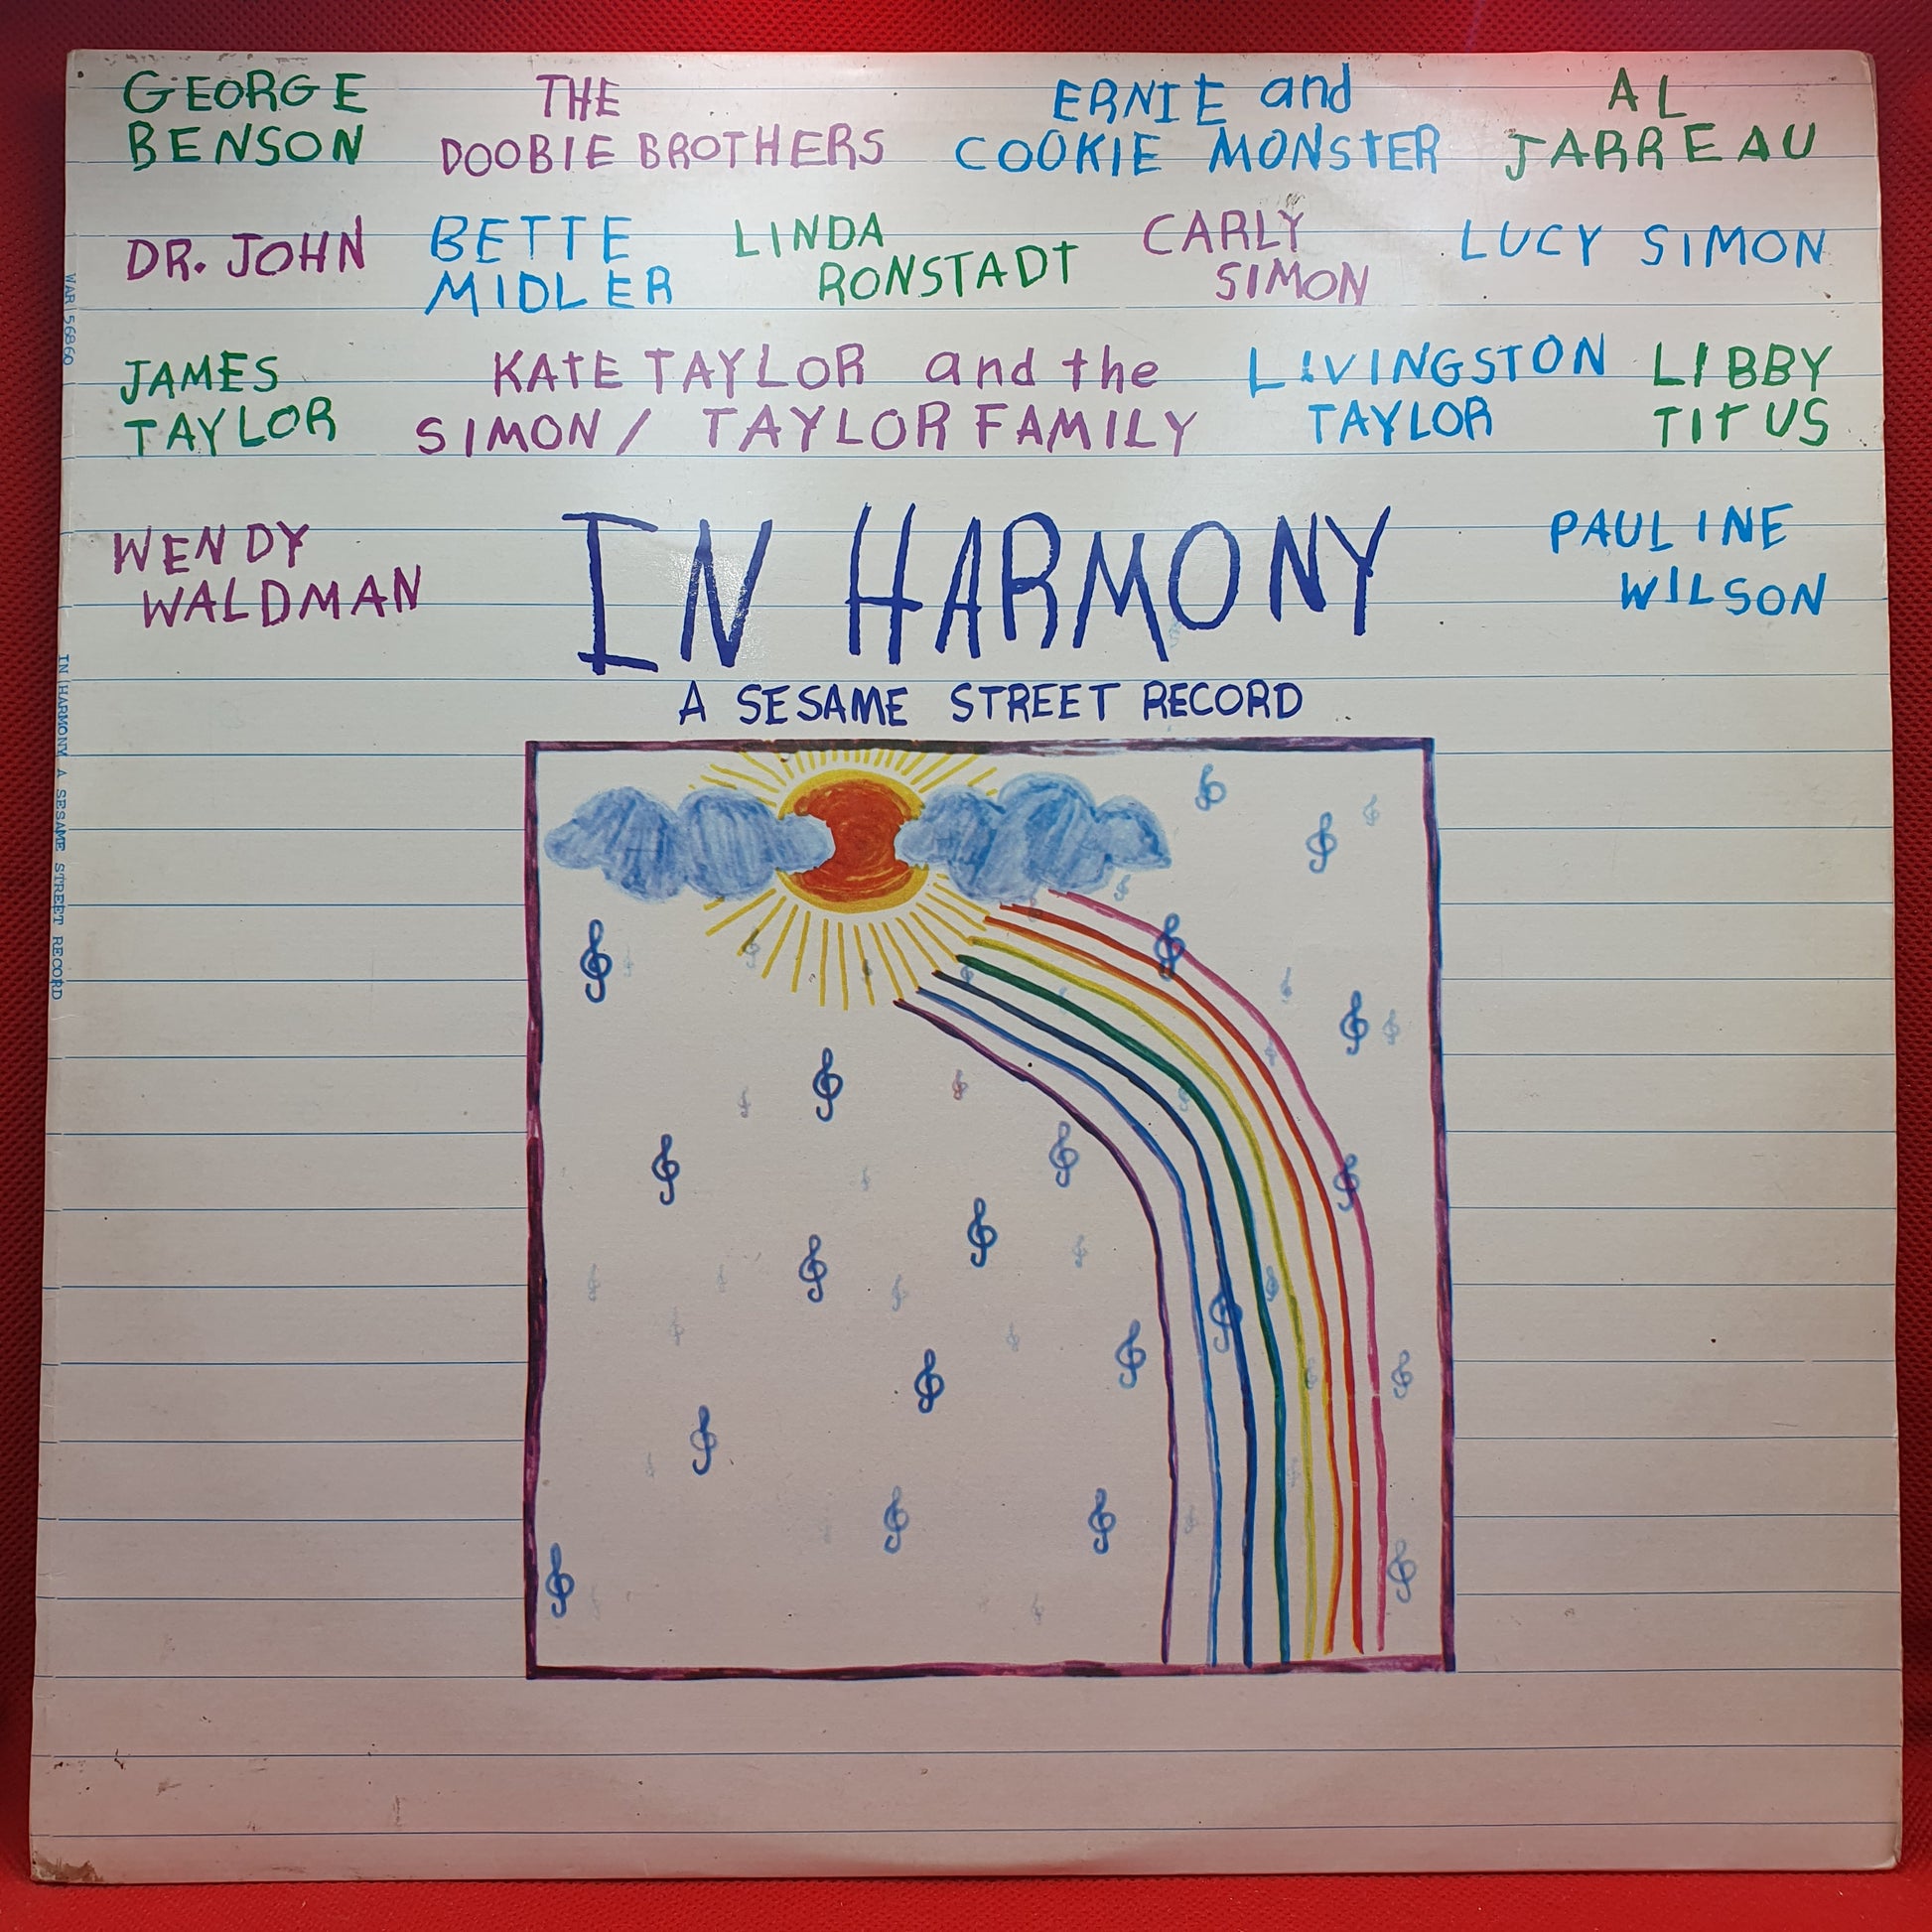 GEORGE
BENSON
THE
DOOBIE BROTHERS
ERNIE and
COOKIE MONSTER
AL
JARREAU
DR. JOHN
BETTE
MIDLER
LINDA
RONSTADT
CARLY
SIMON
LUCY SIMON
JAMES
TAYLOR
KATE TAYLOR and the
SIMON / TAYLOR FAMILY
LIVINGSTON
TAYLOR
LIBBY
TITUS
WENDY
WALDMAN
IN HARMONY
A SESAME STREET RECORD
PAULINE
WILSON
WAR 56860 IN HARMONY A SESAME STREET RECORD